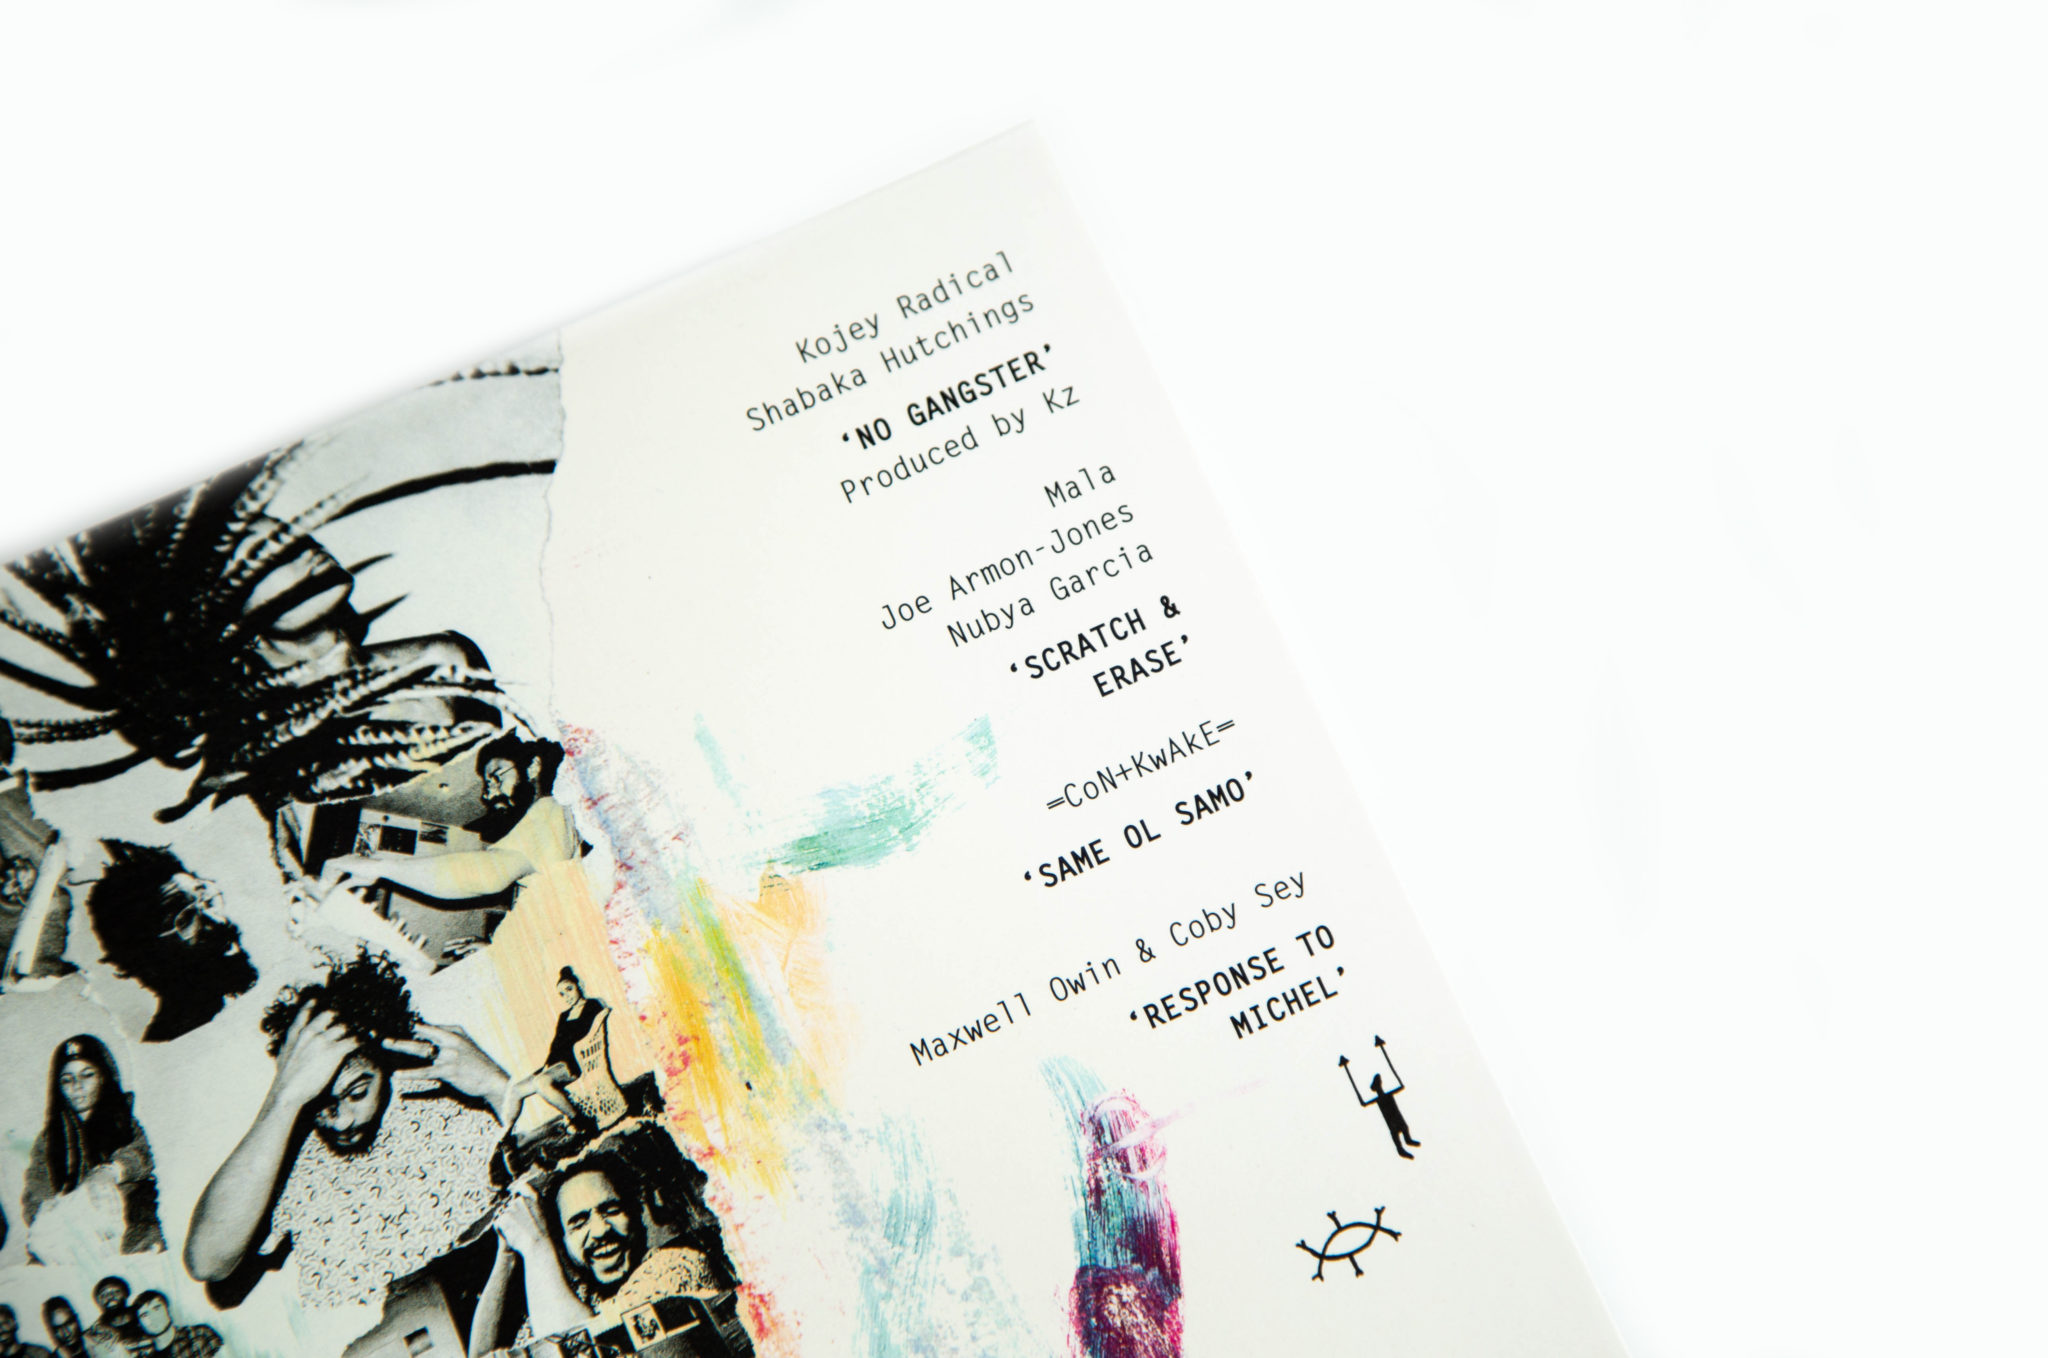 Kojey Radical
Shabaka Hutchings
‘NO GANGSTER’
Produced by Kz
Mala
Joe Armon-Jones
Nubya Garcia
‘SCRATCH &
ERASE’
=CoN+KwAkE=
‘SAME OL SAMO’
Maxwell Owin & Coby Sey
‘RESPONSE TO
MICHEL’